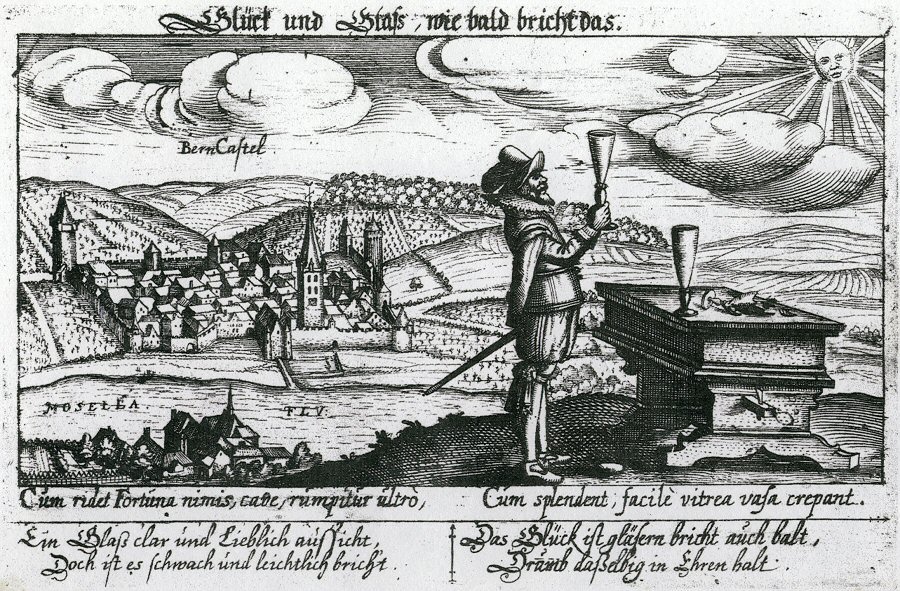 Glück und Glaß, wie bald bricht das.
BernCastel
MOSELLA.
FLV:
Cum ridet Fortuna nimis, cave, rumpitur ultrò,
Cum splendent, facilè vitrea vasa crepant.
Ein Glaß clar und Lieblich aussicht,
Doch ist es schwach und leichtlich bricht.
Das Glück ist gläsern bricht auch balt,
Drumb daßelbig in Ehren halt.